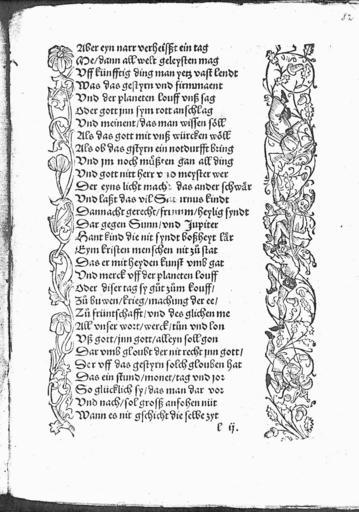 82
Aber eyn narr verheißt ein tag
Me/dann all welt geleysten mag
Vff künfftig ding man yetz vast lendt
Was das gestyrn vnd firmament
Vnd der planeten louff vnß sag
Oder gott jnn sym rott anschlag
Vnd meinent/das man wissen söll
Als das gott mit vnß würcken wöll
Als ob das gstyrn ein notdurfft bring
Vnd jm noch müßten gan all ding
Vnd gott nitt herr vnd meyster wer
Der eyns licht macht das ander schwär
Vnd laßt das vil Saturnus kindt
Dannacht gerecht/frumm/heylig syndt
Dar gegen Sunn/vnd Jupiter
Hant kind die nit syndt boßheyt lär
Eym kristen menschen nit zů stat
Das er mit heyden kunst vmb gat
Vnd merck vff der planeten louff
Oder diser tag sy gůt zům kouff/
Zů buwen/krieg/machung der ee/
Zů früntschafft/vnd des glichen me
All vnser wort/werck/tůn vnd lon
Vß gott/jnn gott/alleyn soll gon
Dar vmb gloubt der nit recht jnn gott/
Der vff das gestyrn solch glouben hat
Das ein stund/monet/tag vnd jor
So glücklich sy/das man dar vor
Vnd nach/sol groß anfohen nüt
Wann es nit gschicht die selbe zyt
l ij.